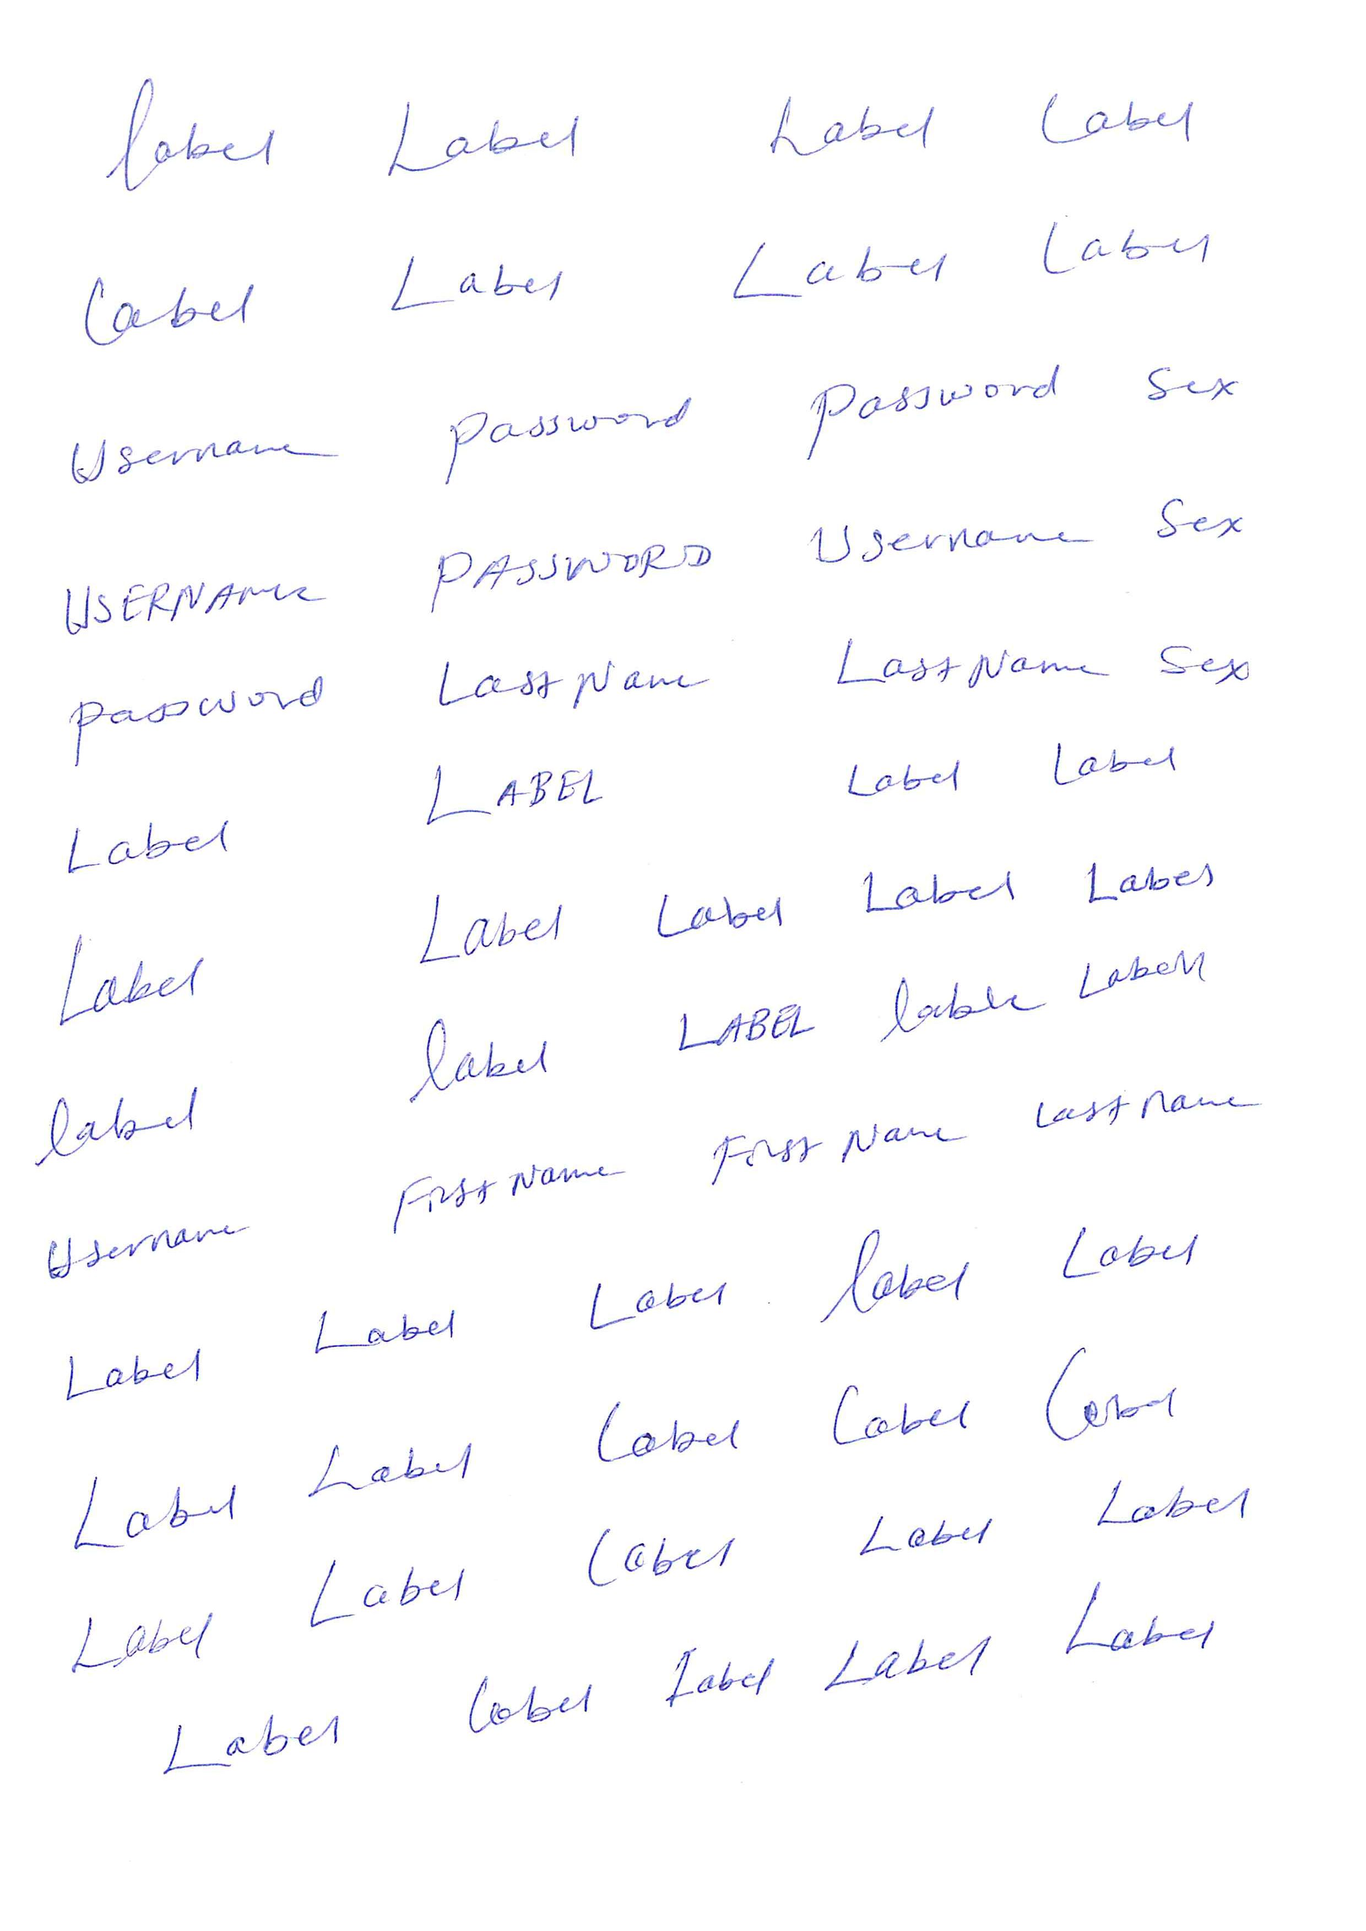 label Label Label Label
Label Label Label Label
Username Password Password Sex
USERNAME PASSWORD Username Sex
Password Last Name Last Name Sex
Label LABEL Label Label
Label Label Label Label Label
label label LABEL lable Labell
Username First Name First Name Last name
Label Label Label label Label
Label Label Label Label Label
Label Label Label Label Label
Label Label Label Label Label